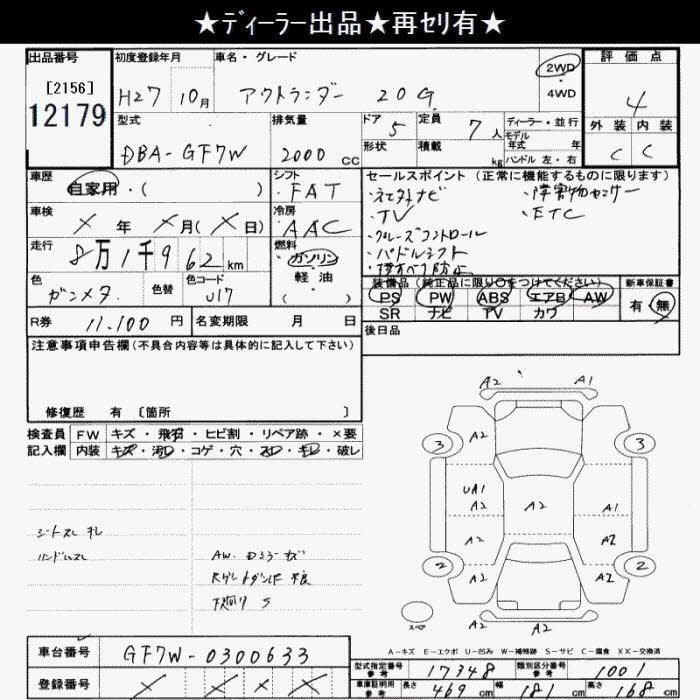 ★ディーラー出品★再セリ有★
出品番号 初度登録年月 車名・グレード 評価点
[2156]
12179
H27 10月 アウトランダー 20G 2WD 4WD 4
型式 排気量 ドア 定員 ディーラー・並行 外装 内装
DBA-GF7W 2000cc 5 7人 モデル年式 年 C C
形状 積載 kg ハンドル 左・右
車歴 シフト セールスポイント (正常に機能するものに限ります)
自家用・( ) FAT ・社外ナビ ・障害物センサー
車検 冷房 ・TV ・ETC
× 年 × 月(× 日) AAC ・クルーズコントロール
走行 燃料 ・パドルシフト
8万1千962km ガソリン ・横すべり防止
軽油
( )
色 色替 色コード 装備品 (純正品に限り○をつけてください) 新車保証書
ガンメタ U17 PS PW ABS エアB AW 有・無
SR ナビ TV カワ
R券 11,100円 名変期限 月 日 後日品
注意事項申告欄(不具合内容等は具体的に記入して下さい)
修復歴 有 [箇所 ]
検査員 FW キズ・飛石・ヒビ割・リペア跡・×要
記入欄 内装 キズ・汚れ・コゲ・穴・スレ・キレ・破レ
シートスレ キレ
ハンドルスレ
下廻り S
A2 A1
3 A2 3
UA1
A2 A2 A1
A2 A2
2 A2 A2 2
スペア A2 A2
A-キズ E-エクボ U-凹み W-補修跡 S-サビ C-腐食 XX-交換済
車台番号 GF7W-0300633
型式指定番号 参考 17348 類別区分番号 参考 1001
登録番号 × × × ×
車庫証明用 参考 長さ 469cm 幅 181cm 高さ 168cm